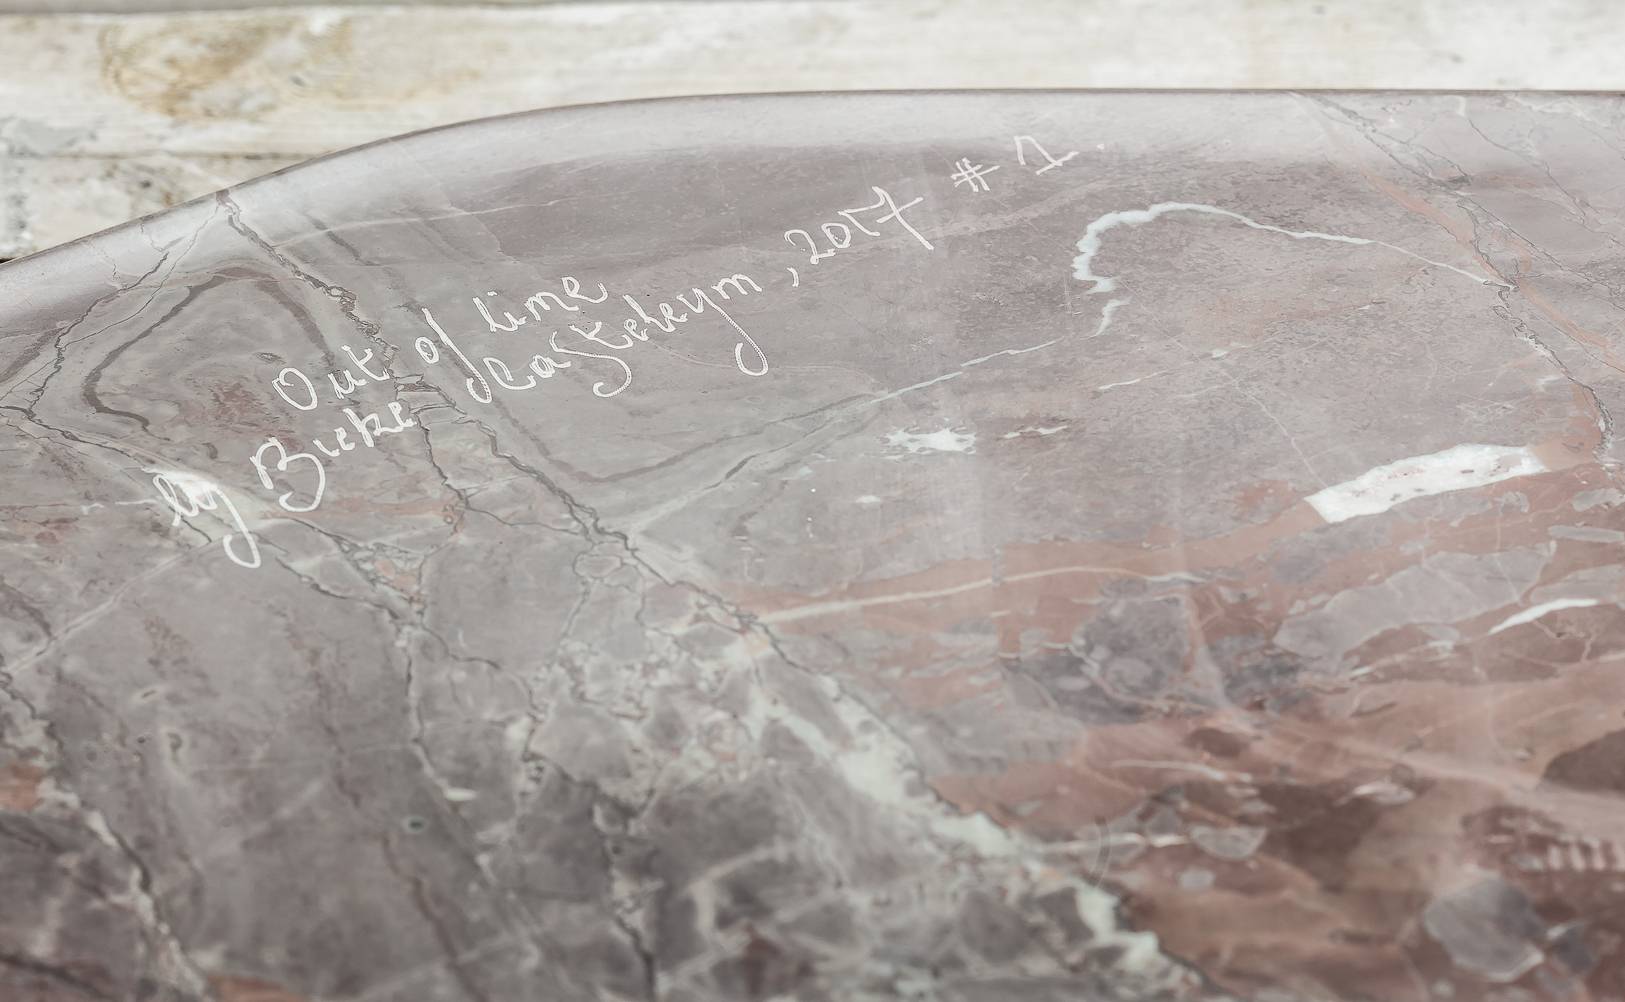 Out of line
by Bieke Casteleyn, 2017 # 1.